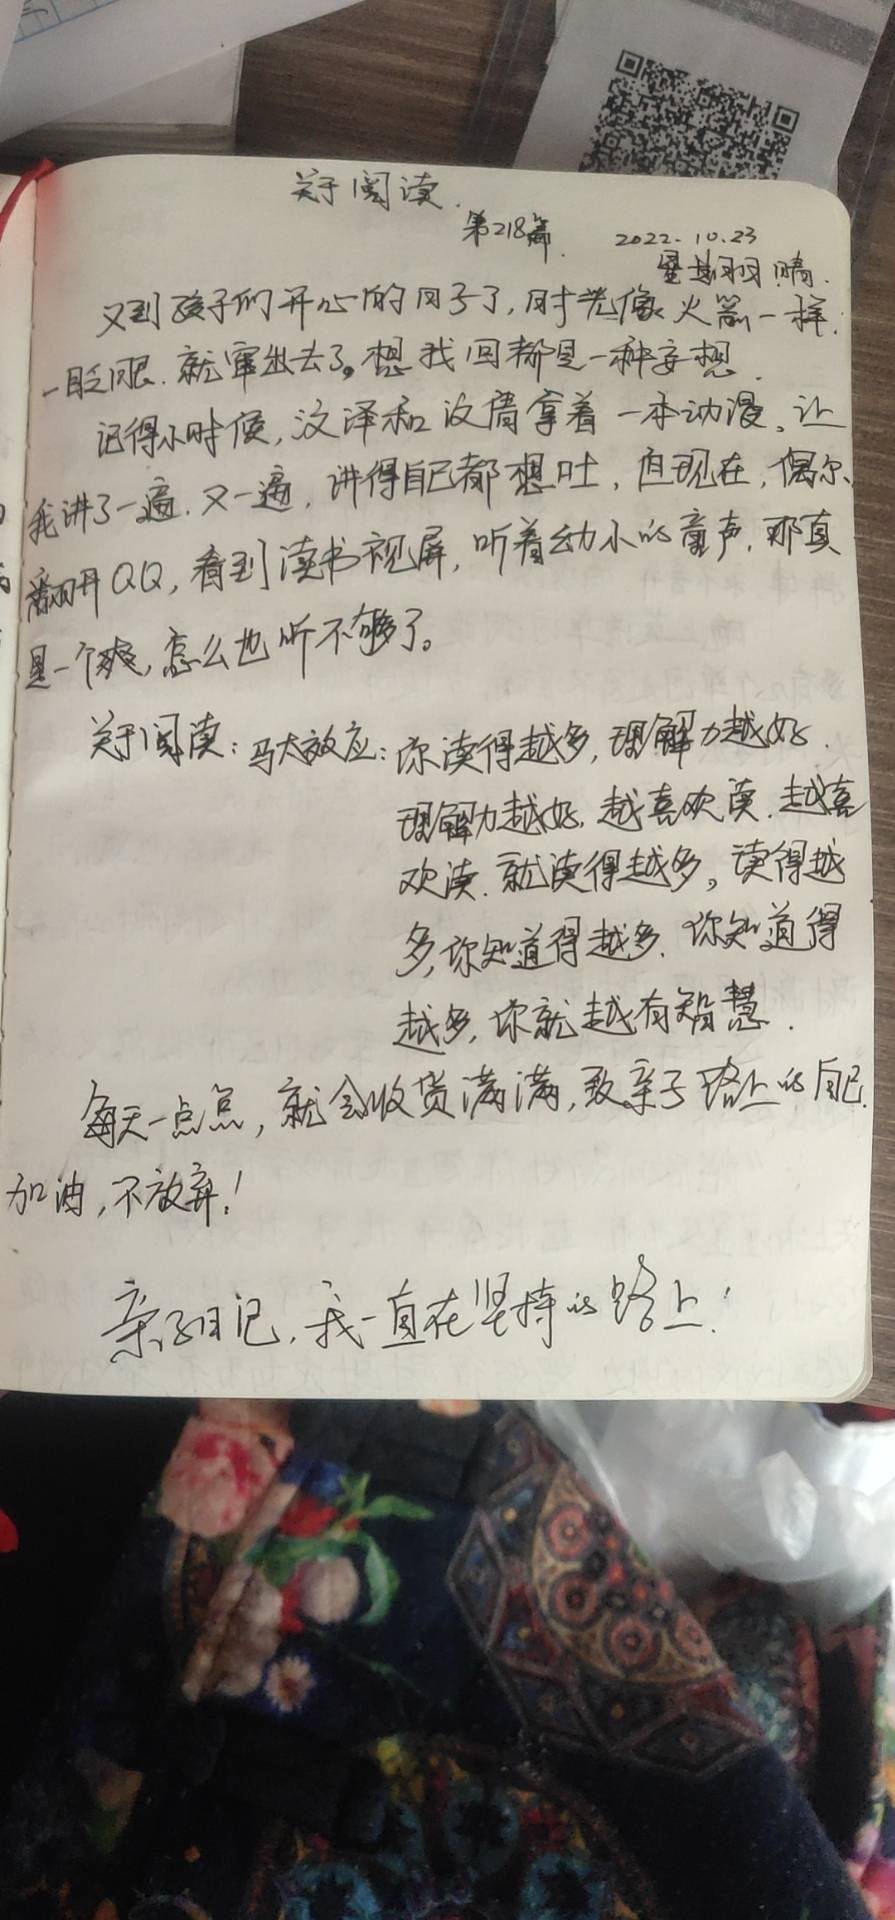 关于阅读.
第218篇. 2022.10.23
星期日 晴.
又到孩子们开心的日子了,时光像火箭一样.
一眨眼.就窜出去了。想找回都是一种妄想.
记得小时候,汶泽和汶倩拿着一本动漫、让
我讲了一遍.又一遍,讲得自己都想吐,但现在,偶尔、
翻开QQ,看到读书视屏,听着幼小的童声.那真
是一个爽,怎么也听不够了。
关于阅读:马太效应:你读得越多,理解力越好.
理解力越好.越喜欢读.越喜
欢读.就读得越多。读得越
多,你知道得越多.你知道得
越多,你就越有智慧.
每天一点点,就会收货满满,致亲子路上的自己.
加油,不放弃!
亲子日记,我一直在坚持的路上!